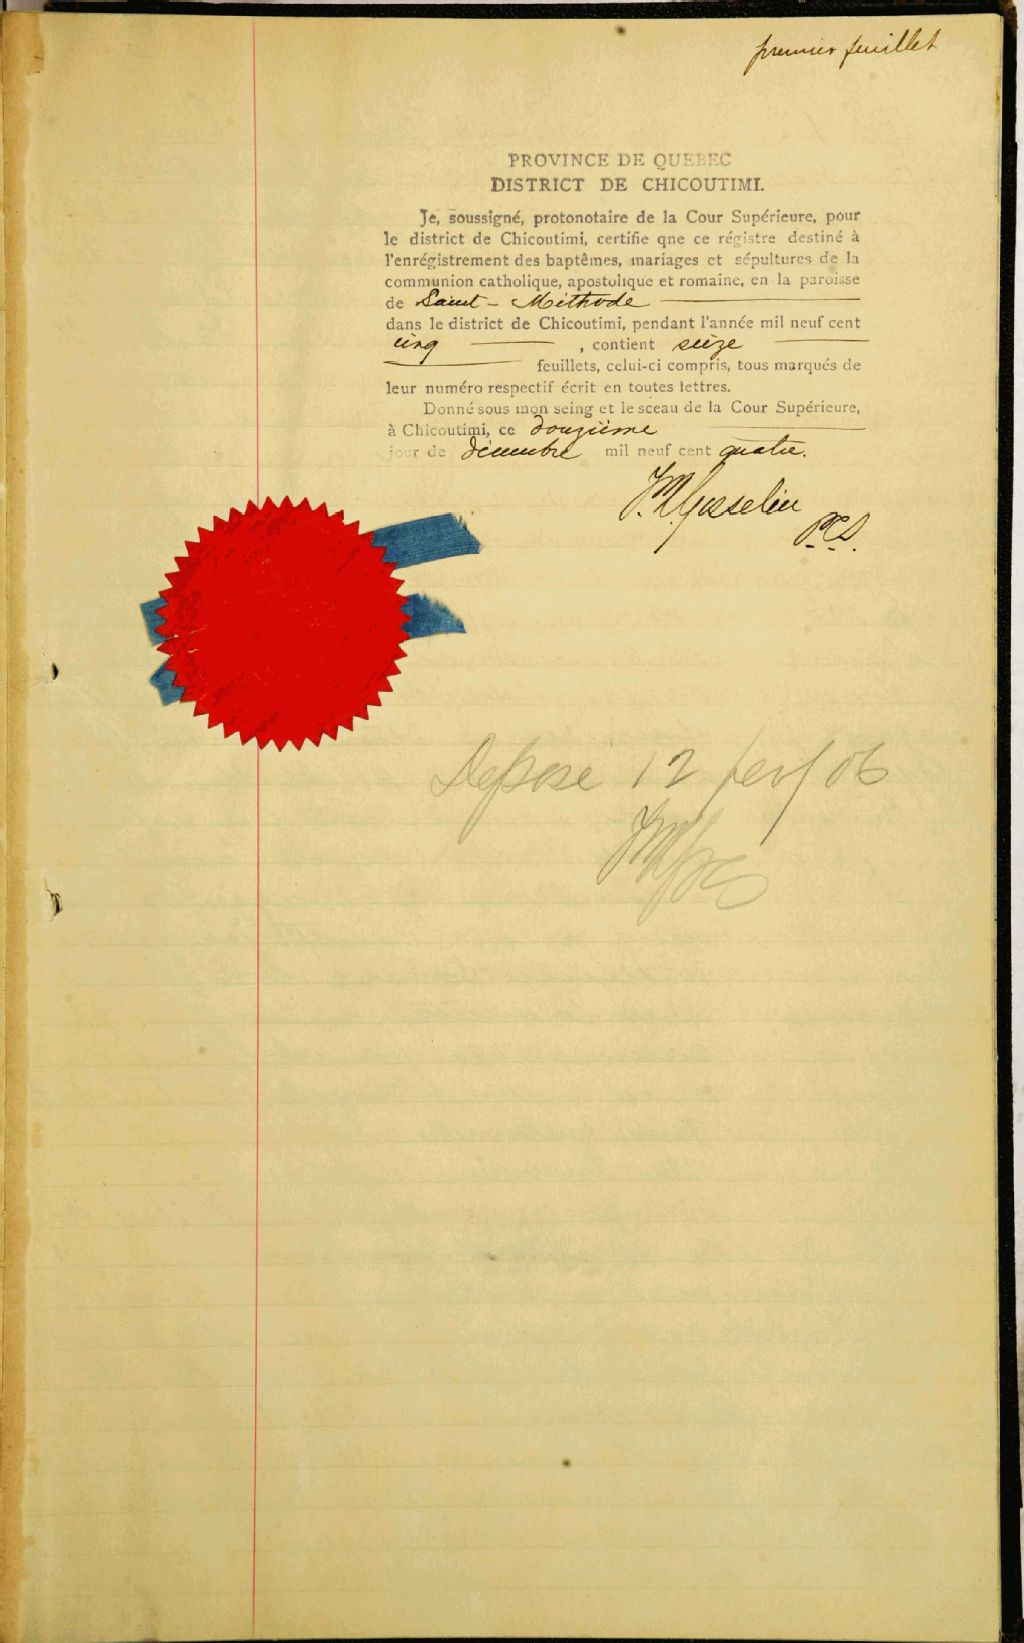 premier feuillet
PROVINCE DE QUEBEC
DISTRICT DE CHICOUTIMI.
Je, soussigné, protonotaire de la Cour Supérieure, pour
le district de Chicoutimi, certifie qne ce régistre destiné à
l'enrégistrement des baptêmes, mariages et sépultures de la
communion catholique, apostolique et romaine, en la paroisse
de Saint-Méthode
dans le district de Chicoutimi, pendant l'année mil neuf cent
cinq , contient seize
feuillets, celui-ci compris, tous marqués de
leur numéro respectif écrit en toutes lettres.
Donné sous mon seing et le sceau de la Cour Supérieure,
à Chicoutimi, ce douzième
jour de décembre mil neuf cent quatre.
Gosselin
P.C.S.
Déposé 12 fev/06